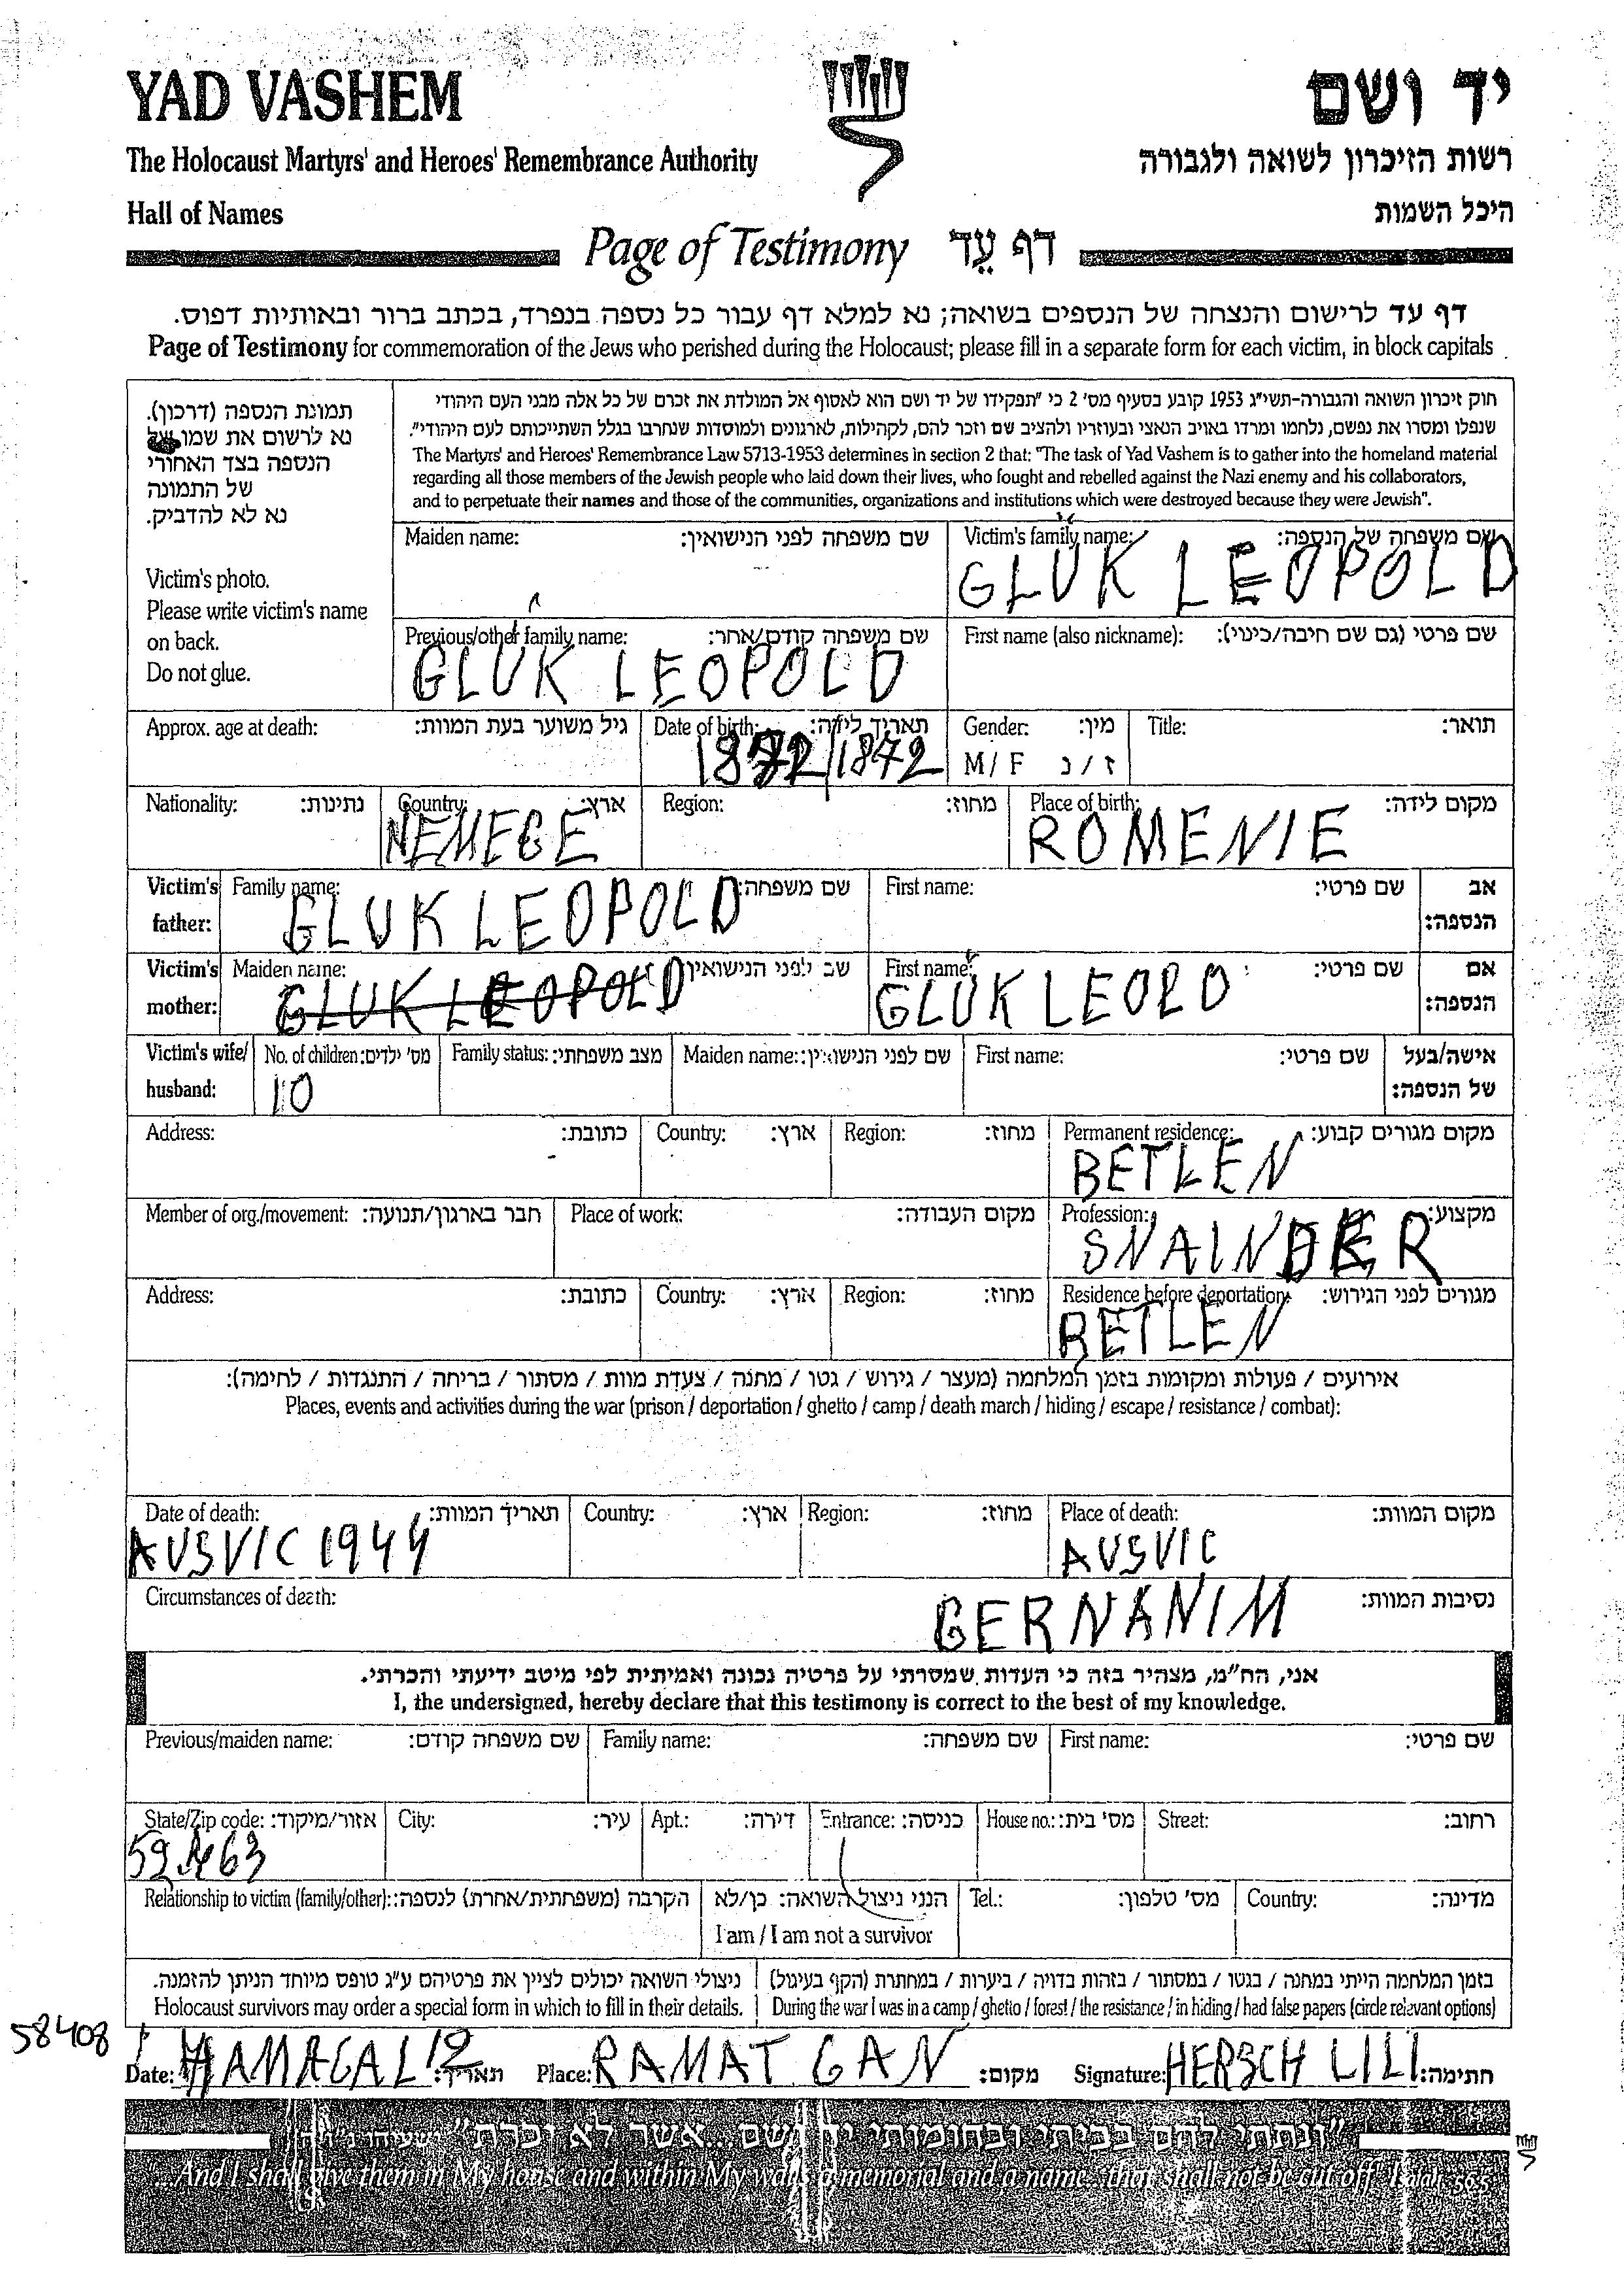 YAD VASHEM
יד ושם
The Holocaust Martyrs' and Heroes' Remembrance Authority
רשות הזיכרון לשואה ולגבורה
Hall of Names
היכל השמות
Page of Testimony דף עֵד
דף עד לרישום והנצחה של הנספים בשואה; נא למלא דף עבור כל נספה בנפרד, בכתב ברור ובאותיות דפוס.
Page of Testimony for commemoration of the Jews who perished during the Holocaust; please fill in a separate form for each victim, in block capitals
תמונת הנספה (דרכון).
נא לרשום את שמו של
הנספה בצד האחורי
של התמונה
נא לא להדביק.
Victim's photo.
Please write victim's name
on back.
Do not glue.
חוק זיכרון השואה והגבורה-תשי"ג 1953 קובע בסעיף מס' 2 כי "תפקידו של יד ושם הוא לאסוף אל המולדת את זכרם של כל אלה מבני העם היהודי
שנפלו ומסרו את נפשם, נלחמו ומרדו באויב הנאצי ובעוזריו ולהציב שם וזכר להם, לקהילות, לארגונים ולמוסדות שנחרבו בגלל השתייכותם לעם היהודי".
The Martyrs' and Heroes' Remembrance Law 5713-1953 determines in section 2 that: "The task of Yad Vashem is to gather into the homeland material
regarding all those members of the Jewish people who laid down their lives, who fought and rebelled against the Nazi enemy and his collaborators,
and to perpetuate their names and those of the communities, organizations and institutions which were destroyed because they were Jewish".
Maiden name: שם משפחה לפני הנישואין: Victim's family name: שם משפחה של הנספה:
GLUK LEOPOLD
Previous/other family name: שם משפחה קודם/אחר: First name (also nickname): שם פרטי (גם שם חיבה/כינוי):
GLUK LEOPOLD
Approx. age at death: גיל משוער בעת המוות: Date of birth: תאריך לידה: Gender: מין: Title: תואר:
1872 M / F ז / נ
Nationality: נתינות: Country: ארץ: Region: מחוז: Place of birth: מקום לידה:
NEMEGE ROMENIE
Victim's father: Family name: שם משפחה: First name: שם פרטי: אב הנספה:
GLUK LEOPOLD
Victim's mother: Maiden name: שם לפני הנישואין First name: שם פרטי: אם הנספה:
GLUK LEOPOLD GLUK LEOLD
Victim's wife/ husband: No. of children: מס' ילדים: Family status: מצב משפחתי: Maiden name: שם לפני הנישואין: First name: שם פרטי: אישה/בעל של הנספה:
10
Address: כתובת: Country: ארץ: Region: מחוז: Permanent residence: מקום מגורים קבוע:
BETLEN
Member of org./movement: חבר בארגון/תנועה: Place of work: מקום העבודה: Profession: מקצוע:
Address: כתובת: Country: ארץ: Region: מחוז: Residence before deportation: מגורים לפני הגירוש:
BETLEN
אירועים / פעולות ומקומות בזמן המלחמה (מעצר / גירוש / גטו / מחנה / צעדת מוות / מסתור / בריחה / התנגדות / לחימה):
Places, events and activities during the war (prison / deportation / ghetto / camp / death march / hiding / escape / resistance / combat):
Date of death: תאריך המוות: Country: ארץ: Region: מחוז: Place of death: מקום המוות:
AUSVIC 1944 AUSVIC
Circumstances of death: נסיבות המוות:
GERNANIM
אני, הח"מ, מצהיר בזה כי העדות שמסרתי על פרטיה נכונה ואמיתית לפי מיטב ידיעתי והכרתי.
I, the undersigned, hereby declare that this testimony is correct to the best of my knowledge.
Previous/maiden name: שם משפחה קודם: Family name: שם משפחה: First name: שם פרטי:
State/Zip code: אזור/מיקוד: City: עיר: Apt.: דירה: Entrance: כניסה: House no.: מס' בית: Street: רחוב:
Relationship to victim (family/other): הקרבה (משפחתית/אחרת) לנספה: הנני ניצול השואה: כן/לא Tel.: מס' טלפון: Country: מדינה:
I am / I am not a survivor
ניצולי השואה יכולים לציין את פרטיהם ע"ג טופס מיוחד הניתן להזמנה. בזמן המלחמה הייתי במחנה / בגטו / במסתור / בזהות בדויה / ביערות / במחתרת (הקף בעיגול)
Holocaust survivors may order a special form in which to fill in their details. During the war I was in a camp / ghetto / forest / the resistance / in hiding / had false papers (circle relevant options)
58408
Date: HAMAGAL 12 תאריך: Place: RAMAT GAN מקום: Signature: HERSCH LILI חתימה:
"ונתתי להם בביתי ובחומותי יד ושם...אשר לא יכרת"
...And I shall give them in My house and within My walls a memorial and a name...that shall not be cut off.